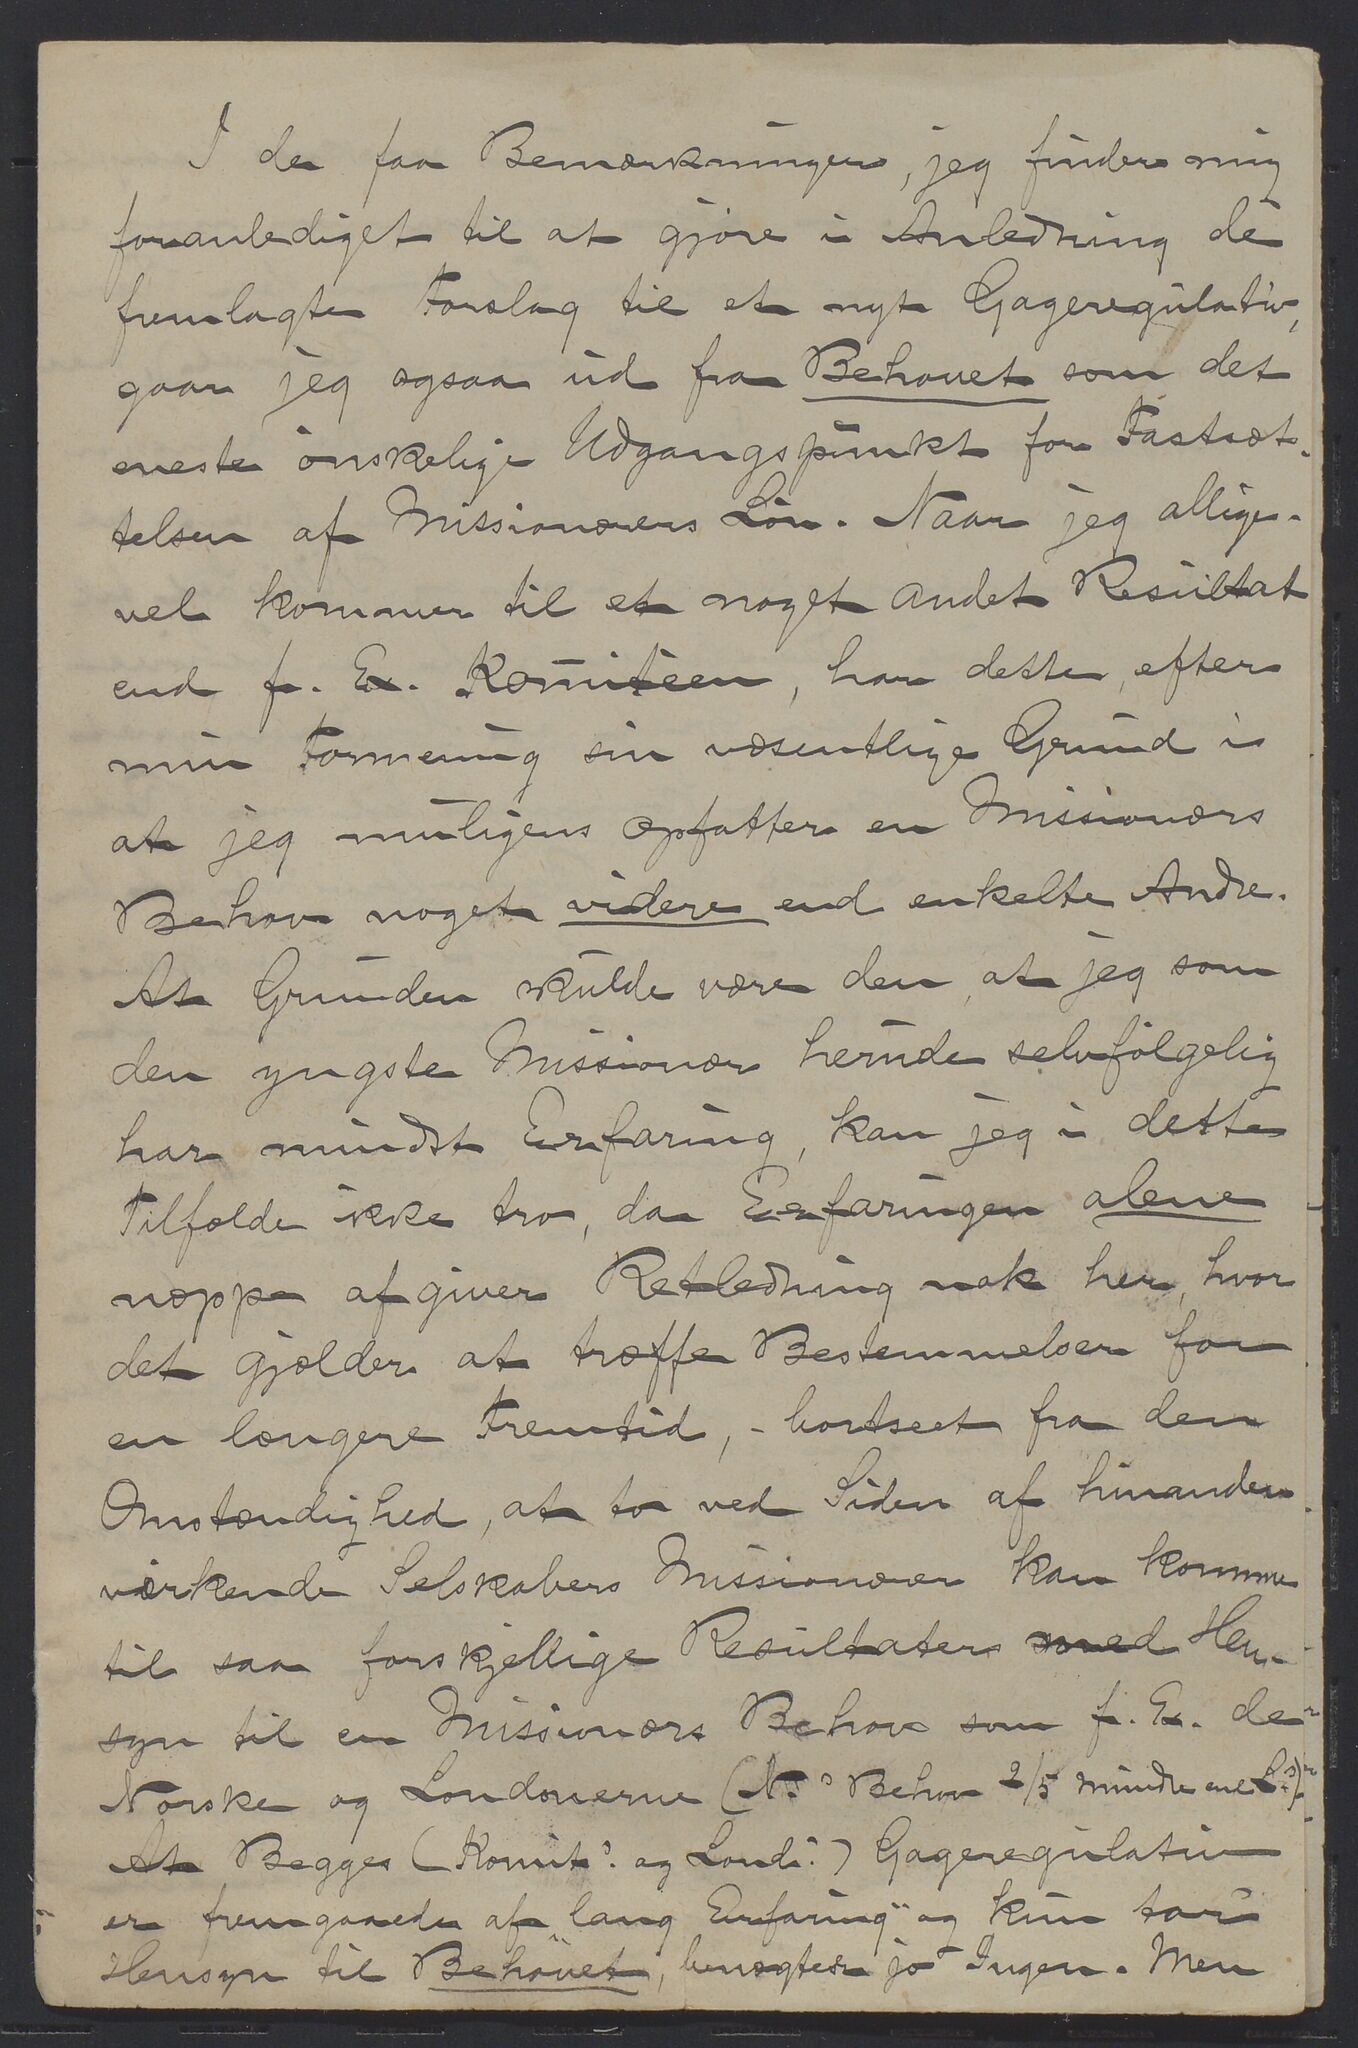 I de faa Bemærkninger, jeg finder mig
foranlediget til at gjøre i Anledning de
fremlagte Forslag til et nyt Gageregulativ,
gaar jeg ogsaa ud fra Behovet som det
eneste ønskelige Udgangspunkt for Fastsæt-
telsen af Missionærers Løn. Naar jeg allige-
vel kommer til et noget andet Resultat
end f. Ex. Komiteen, har dette, efter
min Formening sin væsentlige Grund i
at jeg muligens opfatter en Missionærs
Behov noget videre end enkelte Andre.
At Grunden skulde være den, at jeg som
den yngste Missionær herude selvfølgelig
har mindst Erfaring, kan jeg i dette
Tilfælde ikke tro, da Erfaringen alene
næppe afgiver Retledning nok her, hvor
det gjælder at træffe Bestemmelser for
en længere Fremtid, - bortseet fra den
Omstændighed, at to ved Siden af hinanden
virkende Selskabers Missionærer kan komme
til saa forskjellige Resultater med Hen-
syn til en Missionærs Behov som f. Ex. de
Norske og Londonerne (N.s Behov 2/5 mindre end L.s).
At Begges (Komits. og Londs.) Gageregulativ
er fremgaaede af "lang Erfaring" og kun tar
Hensyn til "Behovet", benægter jo Ingen. Men